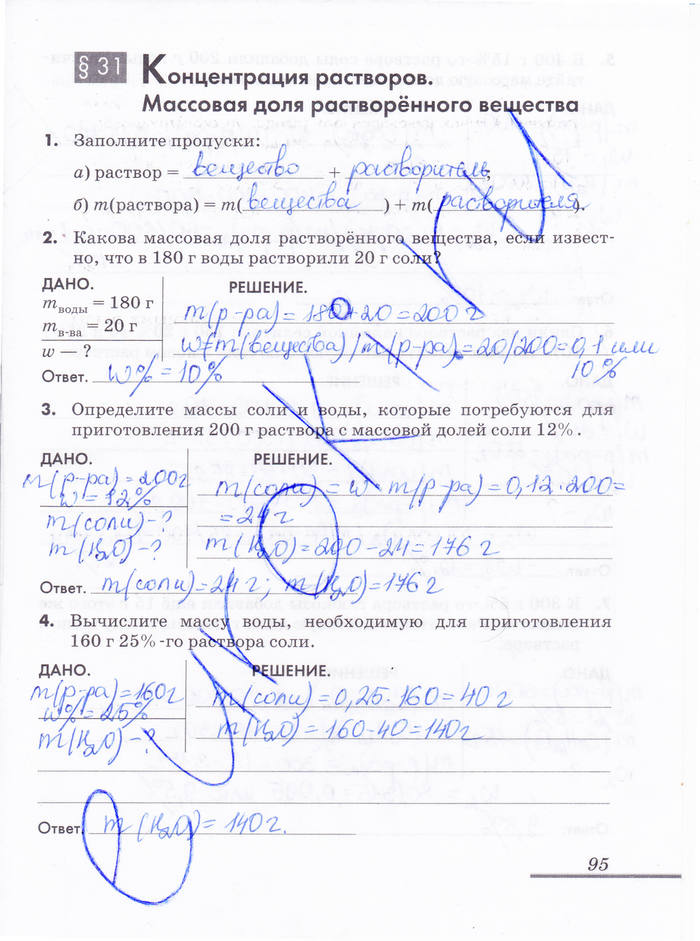 § 31 Концентрация растворов.
Массовая доля растворённого вещества
1. Заполните пропуски:
а) раствор = вещество + растворитель;
б) m(раствора) = m(вещества) + m(растворителя).
2. Какова массовая доля растворённого вещества, если извест-
но, что в 180 г воды растворили 20 г соли?
ДАНО. РЕШЕНИЕ.
mводы = 180 г m(р-ра) = 180+20 = 200 г
mв-ва = 20 г
w — ? w = m(вещества) / m(р-ра) = 20/200 = 0,1 или
10%
Ответ. w% = 10%
3. Определите массы соли и воды, которые потребуются для
приготовления 200 г раствора с массовой долей соли 12%.
ДАНО. РЕШЕНИЕ.
m(р-ра) = 200г m(соли) = w · m(р-ра) = 0,12 · 200 =
w = 12%
m(соли) - ? = 24г
m(H2O) - ? m(H2O) = 200 - 24 = 176 г
Ответ. m(соли) = 24 г; m(H2O) = 176 г
4. Вычислите массу воды, необходимую для приготовления
160 г 25%-го раствора соли.
ДАНО. РЕШЕНИЕ.
m(р-ра) = 160г m(соли) = 0,25 · 160 = 40 г
w% = 25%
m(H2O) - ? m(H2O) = 160-40 = 140г
Ответ. m(H2O) = 140г.
95